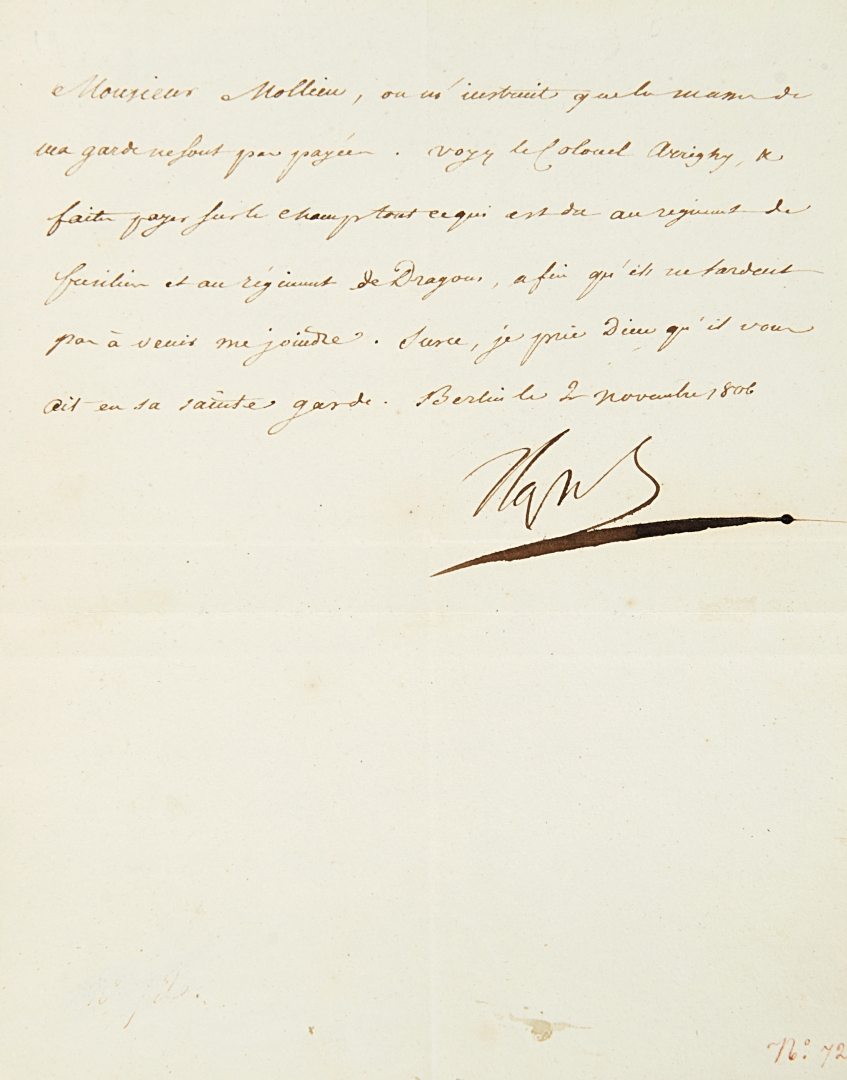 Monsieur Mollien, on m'instruit que les masses de
ma garde ne sont pas payées. voyez le Colonel Arrighy, &
faites payer sur le champ tout ce qui est du au regiment de
fusiliers et au régiment de Dragons, afin qu'ils ne tardent
pas à venir me joindre. Surce, je prie Dieu qu'il vous
ait en sa sainte garde. Berlin le 2 novembre 1806
Nap
N.º 72